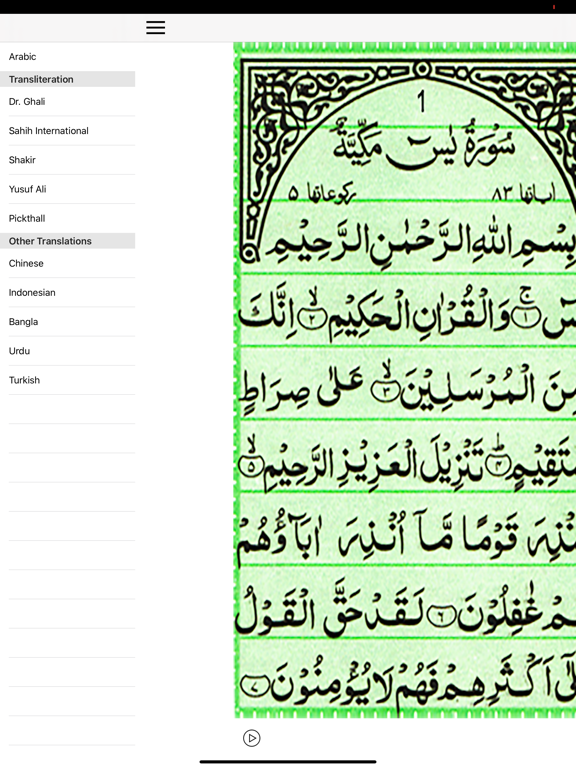 Arabic
Transliteration
Dr. Ghali
Sahih International
Shakir
Yusuf Ali
Pickthall
Other Translations
Chinese
Indonesian
Bangla
Urdu
Turkish
1
سُوْرَةُ يٰسٓ مَكِّيَّةٌ
اٰياتها ٨٣ ركوعاتها ۵
بِسْمِ اللهِ الرَّحْمٰنِ الرَّحِيْمِ
سٓ ۚ ﴿١﴾ وَالْقُرْاٰنِ الْحَكِيْمِ ۙ ﴿٢﴾ اِنَّكَ
مِنَ الْمُرْسَلِيْنَ ۙ ﴿٣﴾ عَلٰى صِرَاطٍ
سْتَقِيْمٍ ؕ ﴿۴﴾ تَنْزِيْلَ الْعَزِيْزِ الرَّحِيْمِ ۙ ﴿۵﴾
نْذِرَ قَوْمًا مَّآ اُنْذِرَ اٰبَآؤُهُمْ
هُمْ غٰفِلُوْنَ ﴿٦﴾ لَقَدْ حَقَّ الْقَوْلُ
لٰٓى اَكْثَرِهِمْ فَهُمْ لَا يُؤْمِنُوْنَ ﴿٧﴾